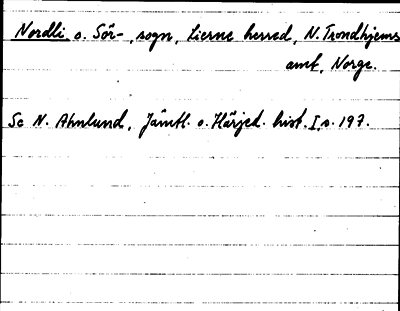 Nordli o. Sör-, sogn, Lierne herred, N. Trondhjems
amt, Norge.
Se N. Ahnlund, Jämtl. o. Härjed. hist. I, s. 197.